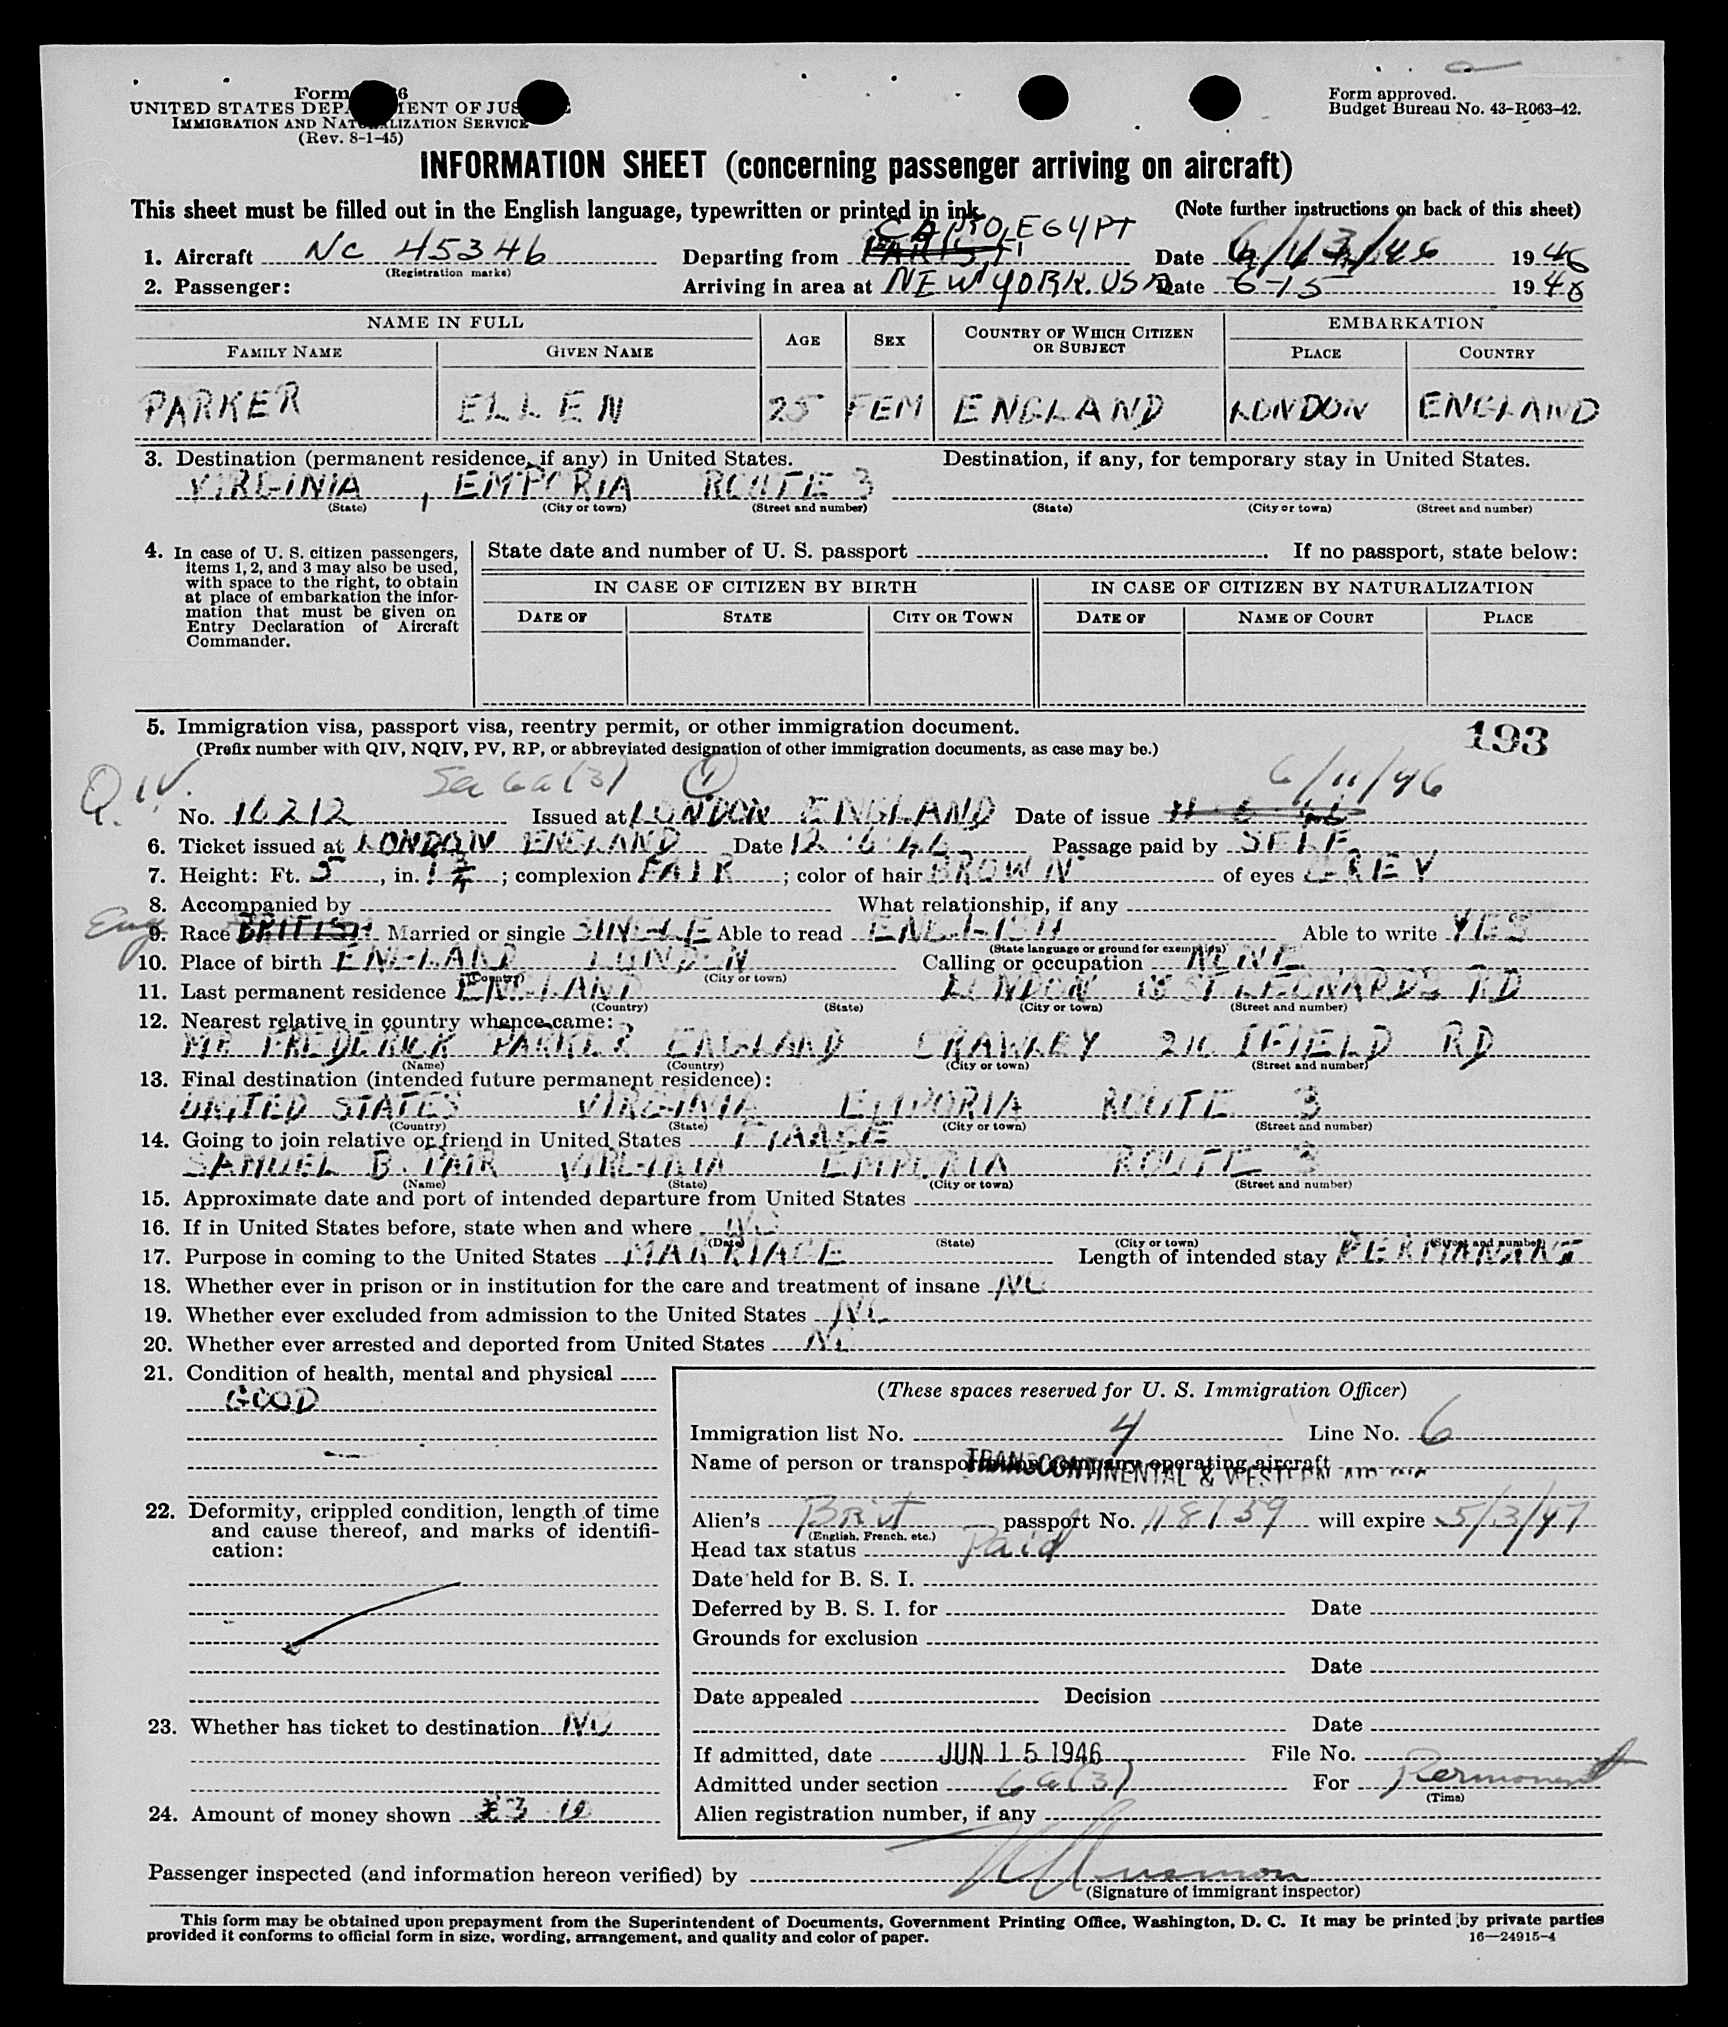 Form
UNITED STATES DEPARTMENT OF JUSTICE
IMMIGRATION AND NATURALIZATION SERVICE
(Rev. 8-1-45)
Form approved.
Budget Bureau No. 43-R063-42.
INFORMATION SHEET (concerning passenger arriving on aircraft)
This sheet must be filled out in the English language, typewritten or printed in ink.
(Note further instructions on back of this sheet)
CAIRO, EGYPT
1. Aircraft NC 45346 Departing from PARIS Date 6/13/46 1946
(Registration marks)
2. Passenger: Arriving in area at NEW YORK. USA Date 6-15 1946
NAME IN FULL AGE SEX COUNTRY OF WHICH CITIZEN OR SUBJECT EMBARKATION
FAMILY NAME GIVEN NAME PLACE COUNTRY
PARKER ELLEN 25 FEM ENGLAND LONDON ENGLAND
3. Destination (permanent residence, if any) in United States. Destination, if any, for temporary stay in United States.
VIRGINIA, EMPORIA ROUTE 3
(State) (City or town) (Street and number) (State) (City or town) (Street and number)
4. In case of U. S. citizen passengers,
items 1, 2, and 3 may also be used,
with space to the right, to obtain
at place of embarkation the infor-
mation that must be given on
Entry Declaration of Aircraft
Commander.
State date and number of U. S. passport . If no passport, state below:
IN CASE OF CITIZEN BY BIRTH IN CASE OF CITIZEN BY NATURALIZATION
DATE OF STATE CITY OR TOWN DATE OF NAME OF COURT PLACE
5. Immigration visa, passport visa, reentry permit, or other immigration document.
193
(Prefix number with QIV, NQIV, PV, RP, or abbreviated designation of other immigration documents, as case may be.)
Q.IV. Sec 6a(3) 1 6/11/46
No. 16212 Issued at LONDON ENGLAND Date of issue
6. Ticket issued at LONDON ENGLAND Date 12.6.46 Passage paid by SELF
7. Height: Ft. 5, in. 1 3/4; complexion FAIR; color of hair BROWN of eyes GREY
8. Accompanied by What relationship, if any
Eng
9. Race BRITISH Married or single SINGLE Able to read ENGLISH Able to write YES
(State language or ground for exemption)
10. Place of birth ENGLAND LONDON Calling or occupation NONE
(Country) (City or town)
11. Last permanent residence ENGLAND LONDON 18 ST LEONARDS RD
(Country) (State) (City or town) (Street and number)
12. Nearest relative in country whence came:
MR FREDERICK PARKER ENGLAND CRAWLEY 210 IFIELD RD
(Name) (Country) (City or town) (Street and number)
13. Final destination (intended future permanent residence):
UNITED STATES VIRGINIA EMPORIA ROUTE 3
(Country) (State) (City or town) (Street and number)
14. Going to join relative or friend in United States FIANCE
SAMUEL B. PAIR VIRGINIA EMPORIA ROUTE 3
(Name) (State) (City or town) (Street and number)
15. Approximate date and port of intended departure from United States
16. If in United States before, state when and where NO
(Date) (State) (City or town) (Street and number)
17. Purpose in coming to the United States MARRIAGE Length of intended stay PERMANANT
18. Whether ever in prison or in institution for the care and treatment of insane NO
19. Whether ever excluded from admission to the United States NO
20. Whether ever arrested and deported from United States NO
21. Condition of health, mental and physical
GOOD
22. Deformity, crippled condition, length of time
and cause thereof, and marks of identifi-
cation:
23. Whether has ticket to destination NO
24. Amount of money shown £3 10
(These spaces reserved for U. S. Immigration Officer)
Immigration list No. 4 Line No. 6
Name of person or transportation company operating aircraft
TRANSCONTINENTAL & WESTERN AIR INC
Alien's Brit passport No. 118159 will expire 5/3/47
(English, French, etc.)
Head tax status Paid
Date held for B. S. I.
Deferred by B. S. I. for Date
Grounds for exclusion
Date
Date appealed Decision
Date
If admitted, date JUN 15 1946 File No.
Admitted under section 6a(3) For Permanent
(Time)
Alien registration number, if any
Passenger inspected (and information hereon verified) by
(Signature of immigrant inspector)
This form may be obtained upon prepayment from the Superintendent of Documents, Government Printing Office, Washington, D. C. It may be printed by private parties
provided it conforms to official form in size, wording, arrangement, and quality and color of paper.
16—24915-4